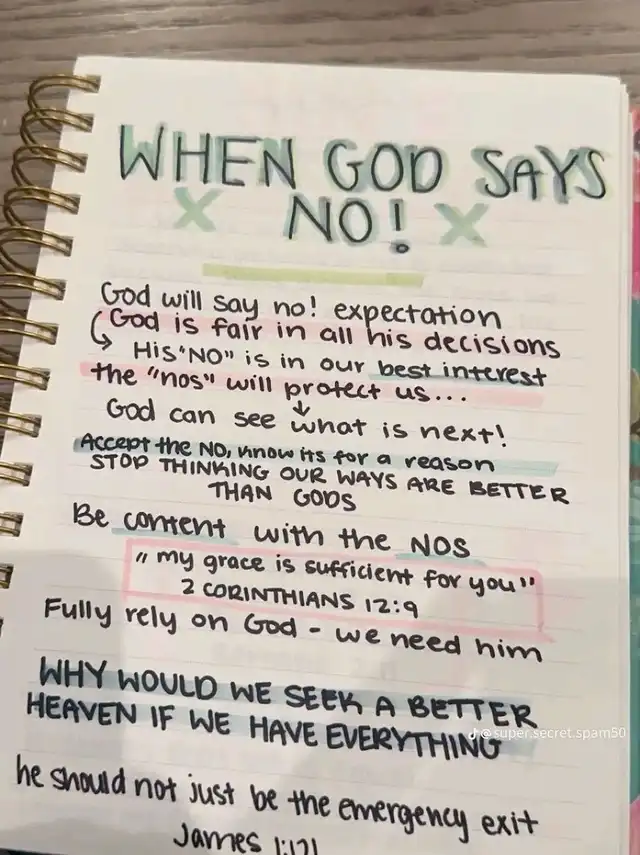 WHEN GOD SAYS
X NO! X
God will say no! expectation
God is fair in all his decisions
His "NO" is in our best interest
the "nos" will protect us...
God can see what is next!
Accept the NO, know its for a reason
STOP THINKING OUR WAYS ARE BETTER
THAN GODS
Be content with the NOS
"my grace is sufficient for you"
2 CORINTHIANS 12:9
Fully rely on God - we need him
WHY WOULD WE SEEK A BETTER
HEAVEN IF WE HAVE EVERYTHING
@super.secret.spam50
he should not just be the emergency exit
James